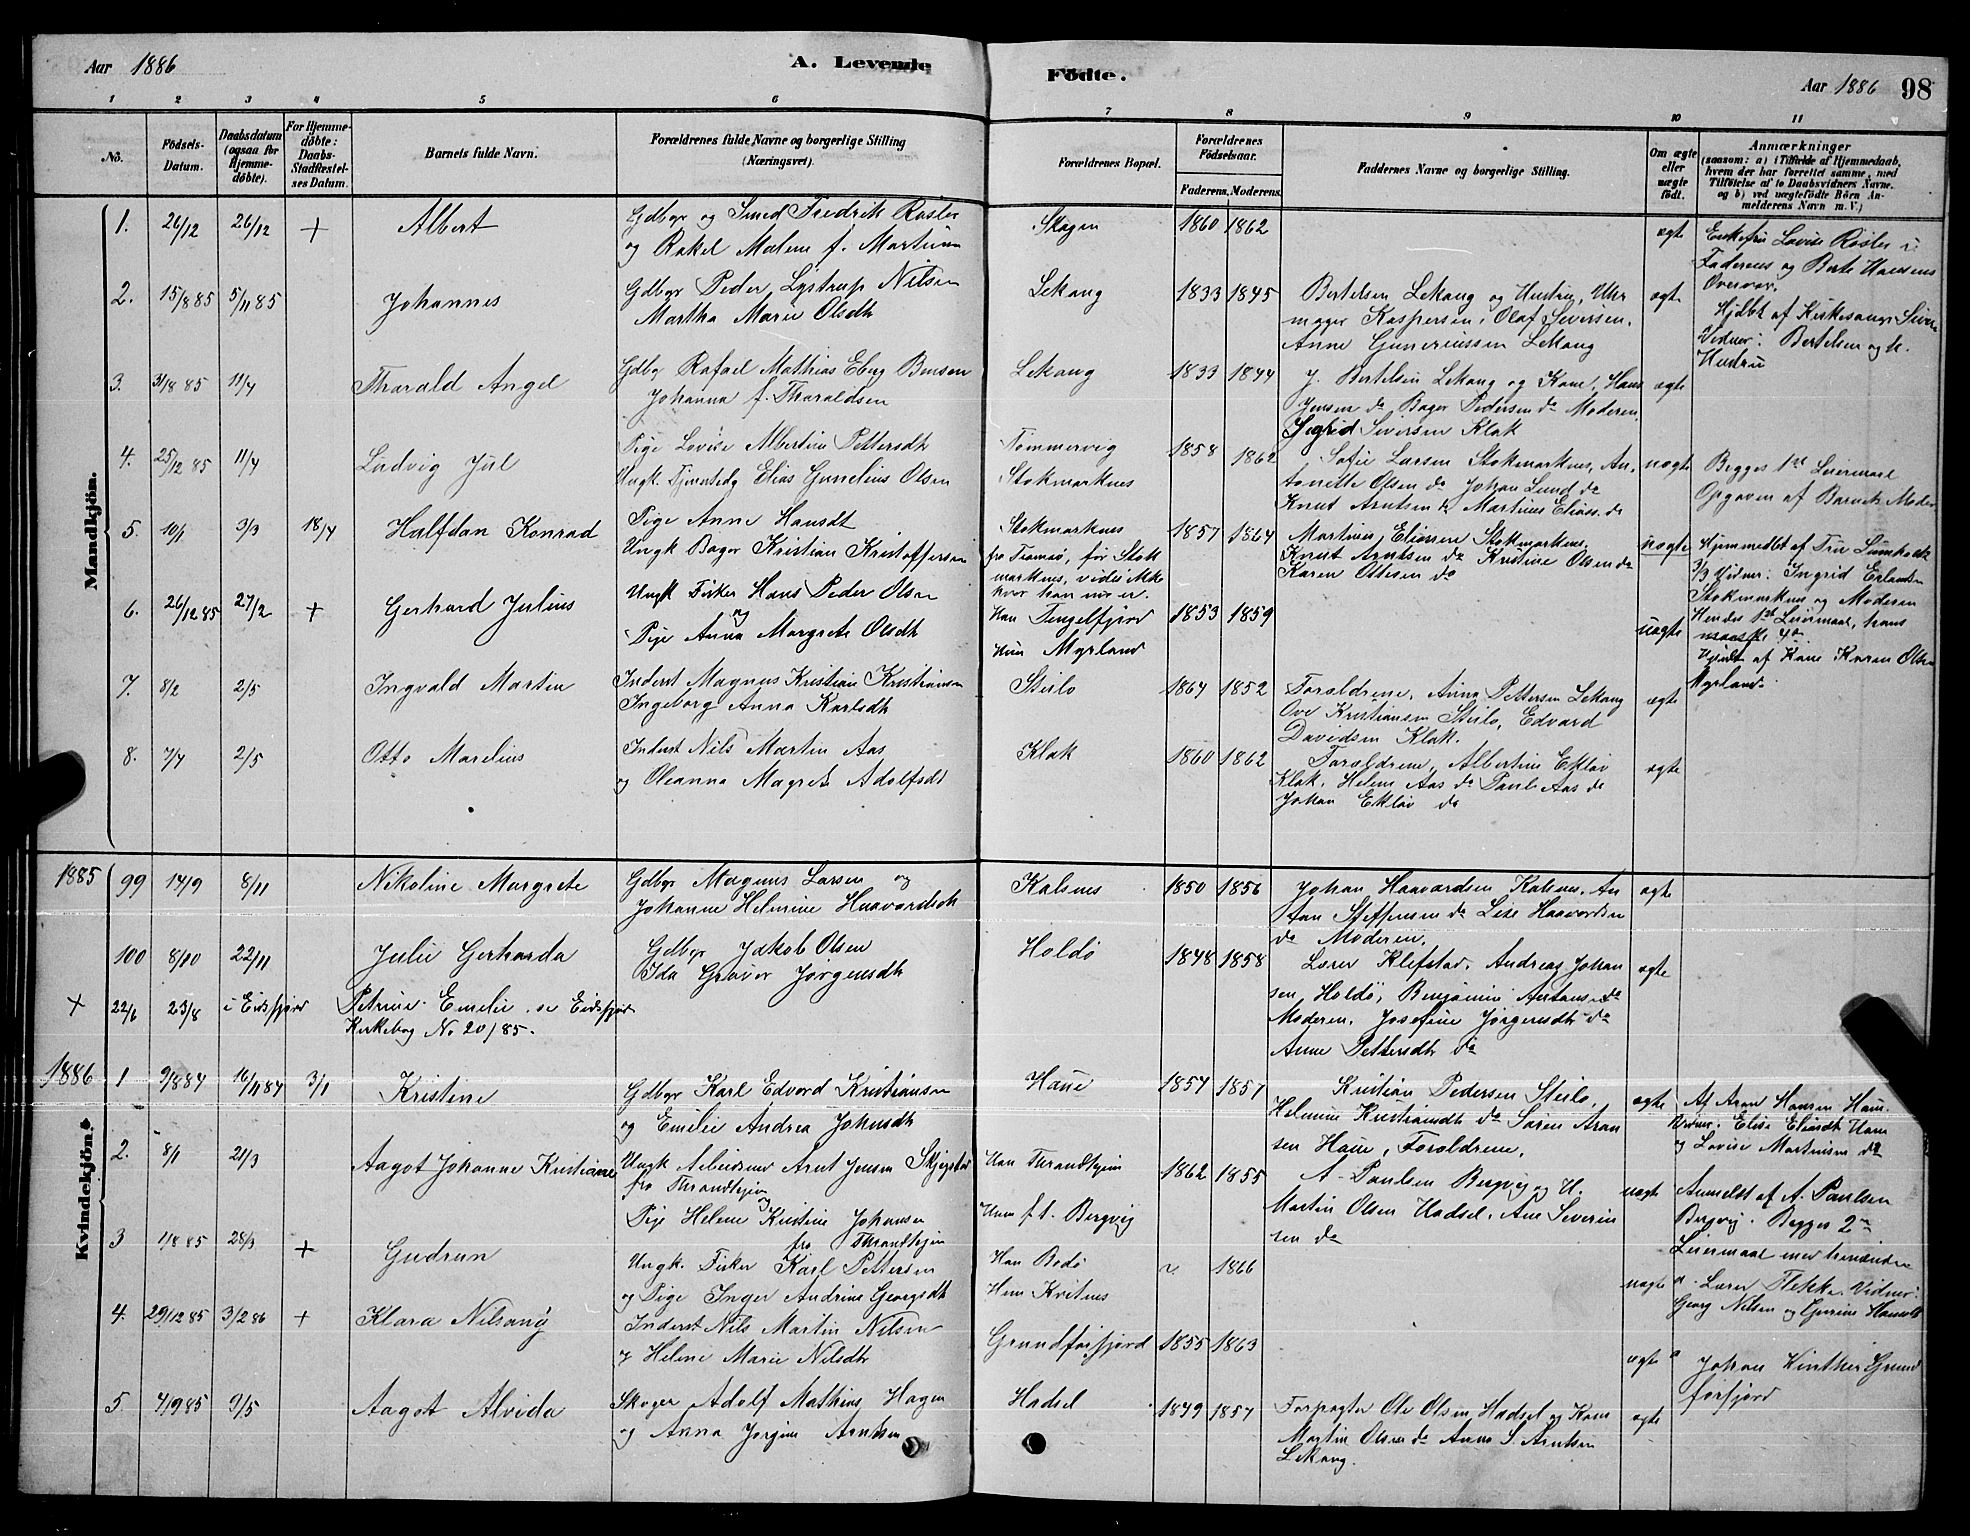 Aar 1886
A. Levende
Fødte.
Aar 1886 98
1 2 3 4 5 6 7 8 9 10 11
No.
Fødsels-
Datum.
Daabsdatum
(ogsaa for
Hjemme-
døbte).
For Hjemme-
døbte:
Daabs-
Stadfæstel-
ses Datum.
Barnets fulde Navn.
Forældrenes fulde Navne og borgerlige Stilling
(Næringsvei).
Forældrenes Bopæl.
Forældrenes
Fødselsaar.
Faderens. Moderens.
Faddernes Navne og borgerlige Stilling.
Om ægte
eller
uægte
født.
Anmærkninger
(saasom: a) i Tilfælde af Hjemmedaab,
hvem der har forrettet samme, med
Tilføielse af to Daabsvidners Navne.
og b) ved uægtefødte Børn An-
melderens Navn m. V.)
Mandkjøn.
1. 26/12 26/12 + Albert
Gdbgr og Smed Fredrik Røsler
og Rakel Malene f. Martinsen
Skagen 1860 1862 ægte
Enkefru Lovise Røsler
Faderens og Berte Hansens
2. 15/8 85 5/11 85 Johannes
Gdbgr Peder Lystrup Nilsen
Martha Marie Olsdtr
Lekang 1833 1845
Bertelsen Lekang og Hustru, Uhr
mager Kaspersen, Olaf Seversen,
Anne Gunerussen Lekang
ægte
Hjdbt af Kirkesanger
Vidner: Bertelsen og
Hustru
3. 31/8 85 11/4 Tharald Angel
Gdbgr Rafael Mathias Eberg Bensen
Johanna f. Tharaldsen
Lekang 1833 1844
J. Bertelsen Lekang og Kone, Hans
Jensen do Bager Pedersen do Moderen
Sigrid Seversen Klak
ægte
4. 25/12 85 11/4 Ludvig Jul
Pige Lovise Albertine Pettersdtr
Ungk. Elias Gunelius Olsen
Tømmervig
Stokmarknes
1858 1862
Sofie Larsen Stokmarknes, An-
tonette Olsen do Johan Lund do
Knut Arntsen do Martinus Elias. do
uægte
Begges 1ste Leiermaal
Opgaven af Barnets Moder
5. 10/1 3/3 18/4 Halfdan Konrad
Pige Anne Hansdt
Ungk Bager Kristian Kristoffersen
Stokmarknes
fra Tromsø, før Stok
marknes, vides ikke
hvor han nu er.
1857 1864
Martinus Eliassen Stokmarknes,
Knut Arntsen do Kristine Olsen do
Karen Ottesen do
uægte
Hjemmedbt af Fru
3/3 Vidner: Ingrid Erlandsen
Stokmarknes og Moderen
6. 26/12 85 27/2 + Gerhard Julius
Ungk Fisker Hans Peder Olsen
og
Pige Anna Margrete Olsdtr
Han Tengelfjord
Hun Myrland
1853 1859 uægte
Hendes 1st Leiermaal, hans
maaske 4de
Hjdbt af Kone Karen Olsen
Myrland.
7. 8/2 2/5 Ingvald Martin
Inderst Magnus Kristian Kristiansen
Ingeborg Anna Karlsdtr
Steilo 1864 1852
Forældrene, Anna Pettersen Lekang
Ove Kristiansen Steilo, Edvard
Davidsen Klak.
ægte
8. 7/4 2/5 Otto Marelius
Inderst Nils Martin Aas
og Oleanna Magrete Adolfsdt
Klak 1860 1862
Forældrene, Albertine Ekløv
Klak, Helene Aas do Paul Aas do
Johan Ekløv do
ægte
1885 99 14/9 8/11 Nikoline Margrete
Gdbgr Magnus Larsen og
Johanne Helmine Haavardsdtr
Kalsnes 1850 1856
Johan Haavardsen Kalsnes, An
ton Steffensen do Lise Haavardsen
do Moderen.
ægte
100 8/10 22/11 Julie Gerharda
Gdbgr Jakob Olsen
Ida Grøver Jørgensdtr
Holdø 1848 1858
Lærer Klefstad, Andreas Johan
sen, Holdø, Benjamin Antonsen do
Moderen, Josefine Jørgensdtr do
Anne Pettersdtr do
ægte
+ 22/6 23/8 i Eidsfjord Petrine Emelie se Eidsfjord
Kirkebog No 20/85.
1886
Kvindekjøn.
1 9/8 84 16/11 84 3/1 Kristine
Gdbgr Karl Edvard Kristiansen
og Emelie Andrea Johnsdtr
Haue 1854 1857
Kristian Pedersen Steilo,
Helmine Kristiansdt do Søren Aron
sen Haue, Forældrene.
ægte
Af Aron Hansen Haue.
Vidner: Elise Eliasdt Haue
og Lovise Martinsen do
2. 8/1 21/3 Aagot Johanne Kristiane
Ungk Arbeidsmd Arnt Jensen Skjegstad
fra Throndhjem
og
Pige Helene Kristine Johansen
fra Throndhjem
Han Throndhjem
Hun f.t. Bergvig
1862 1855
A. Paulsen Bergvig og H.
Martin Olsen Hadsel, Ane Severin
sen do
uægte
Anmeldt af A. Paulsen
Bergvig. Begges 2det
Leiermaal med hinanden
3 1/8 85 28/3 + Gudrun
Ungk. Fisker Karl Pettersen
og Pige Inger Andrine Georgsdt
Han Bodø
Hun Kvitnes
1866 uægte
Lærer Flekke. Vidner:
Georg Nilsen og Gurine Hansdt
4. 29/12 85 3/2 86 + Klara Nilsony
Inderst Nils Martin Nilsen
og Helene Marie Nilsdtr
Grundforfjord 1855 1863 ægte
Johan Winther Grund
forfjord
5. 4/9 85 9/5 Aagot Alvida
Skoger Adolf Mathias Hagen
og Anna Jørgine Arntsen
Hadsel 1849 1857
Forpagter Ole Olsen Hadsel og Kone
Martin Olsen do Anne S. Arntsen
Lekang.
ægte